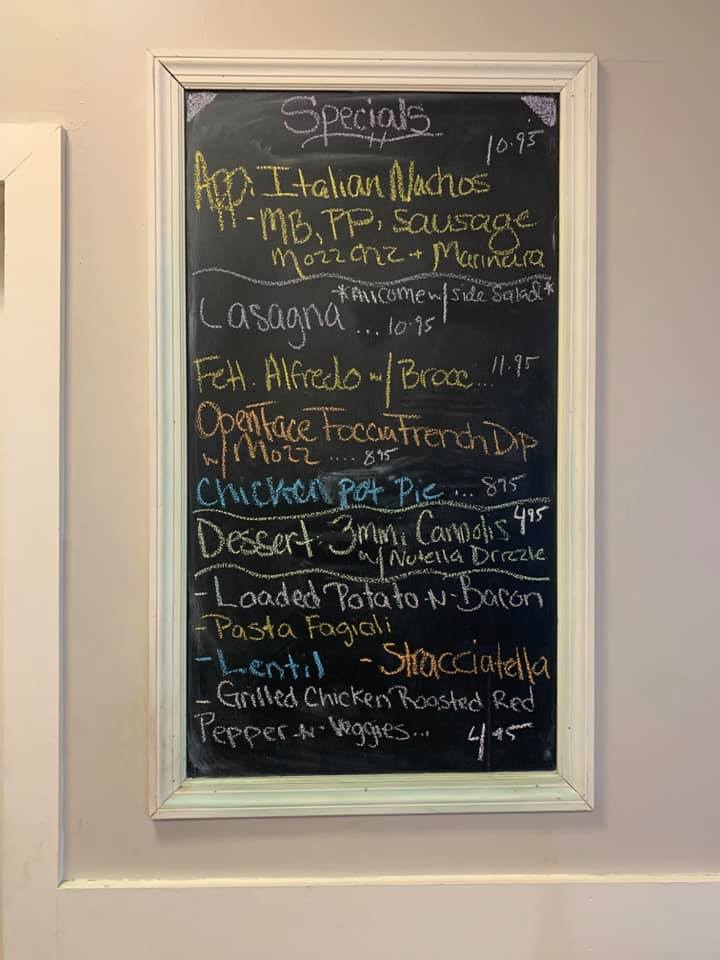 Specials
10.95
App: Italian Nachos
- MB, PP, Sausage
Mozz chz + Marinara
*All come w/ side Salad*
Lasagna ... 10.95
Fett. Alfredo w/ Brocc... 11.95
Open Face Foccia French Dip
w/ Mozz .... 8.95
Chicken Pot Pie ... 8.95
Dessert: 3 mini Cannolis 4.95
w/ Nutella Drizzle
- Loaded Potato -N- Bacon
- Pasta Fagioli
- Lentil - Stracciatella
- Grilled Chicken Roasted Red
Pepper -N- Veggies... 4.95